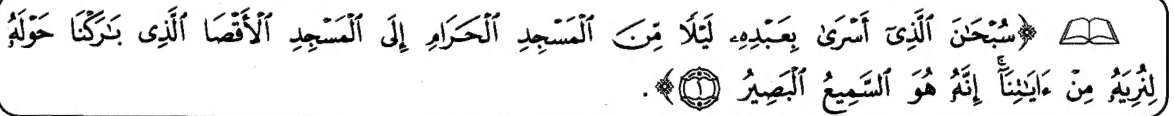 ﴿سُبْحَٰنَ ٱلَّذِىٓ أَسْرَىٰ بِعَبْدِهِۦ لَيْلًا مِّنَ ٱلْمَسْجِدِ ٱلْحَرَامِ إِلَى ٱلْمَسْجِدِ ٱلْأَقْصَا ٱلَّذِى بَٰرَكْنَا حَوْلَهُۥ
لِنُرِيَهُۥ مِنْ ءَايَٰتِنَآ ۚ إِنَّهُۥ هُوَ ٱلسَّمِيعُ ٱلْبَصِيرُ ١﴾.